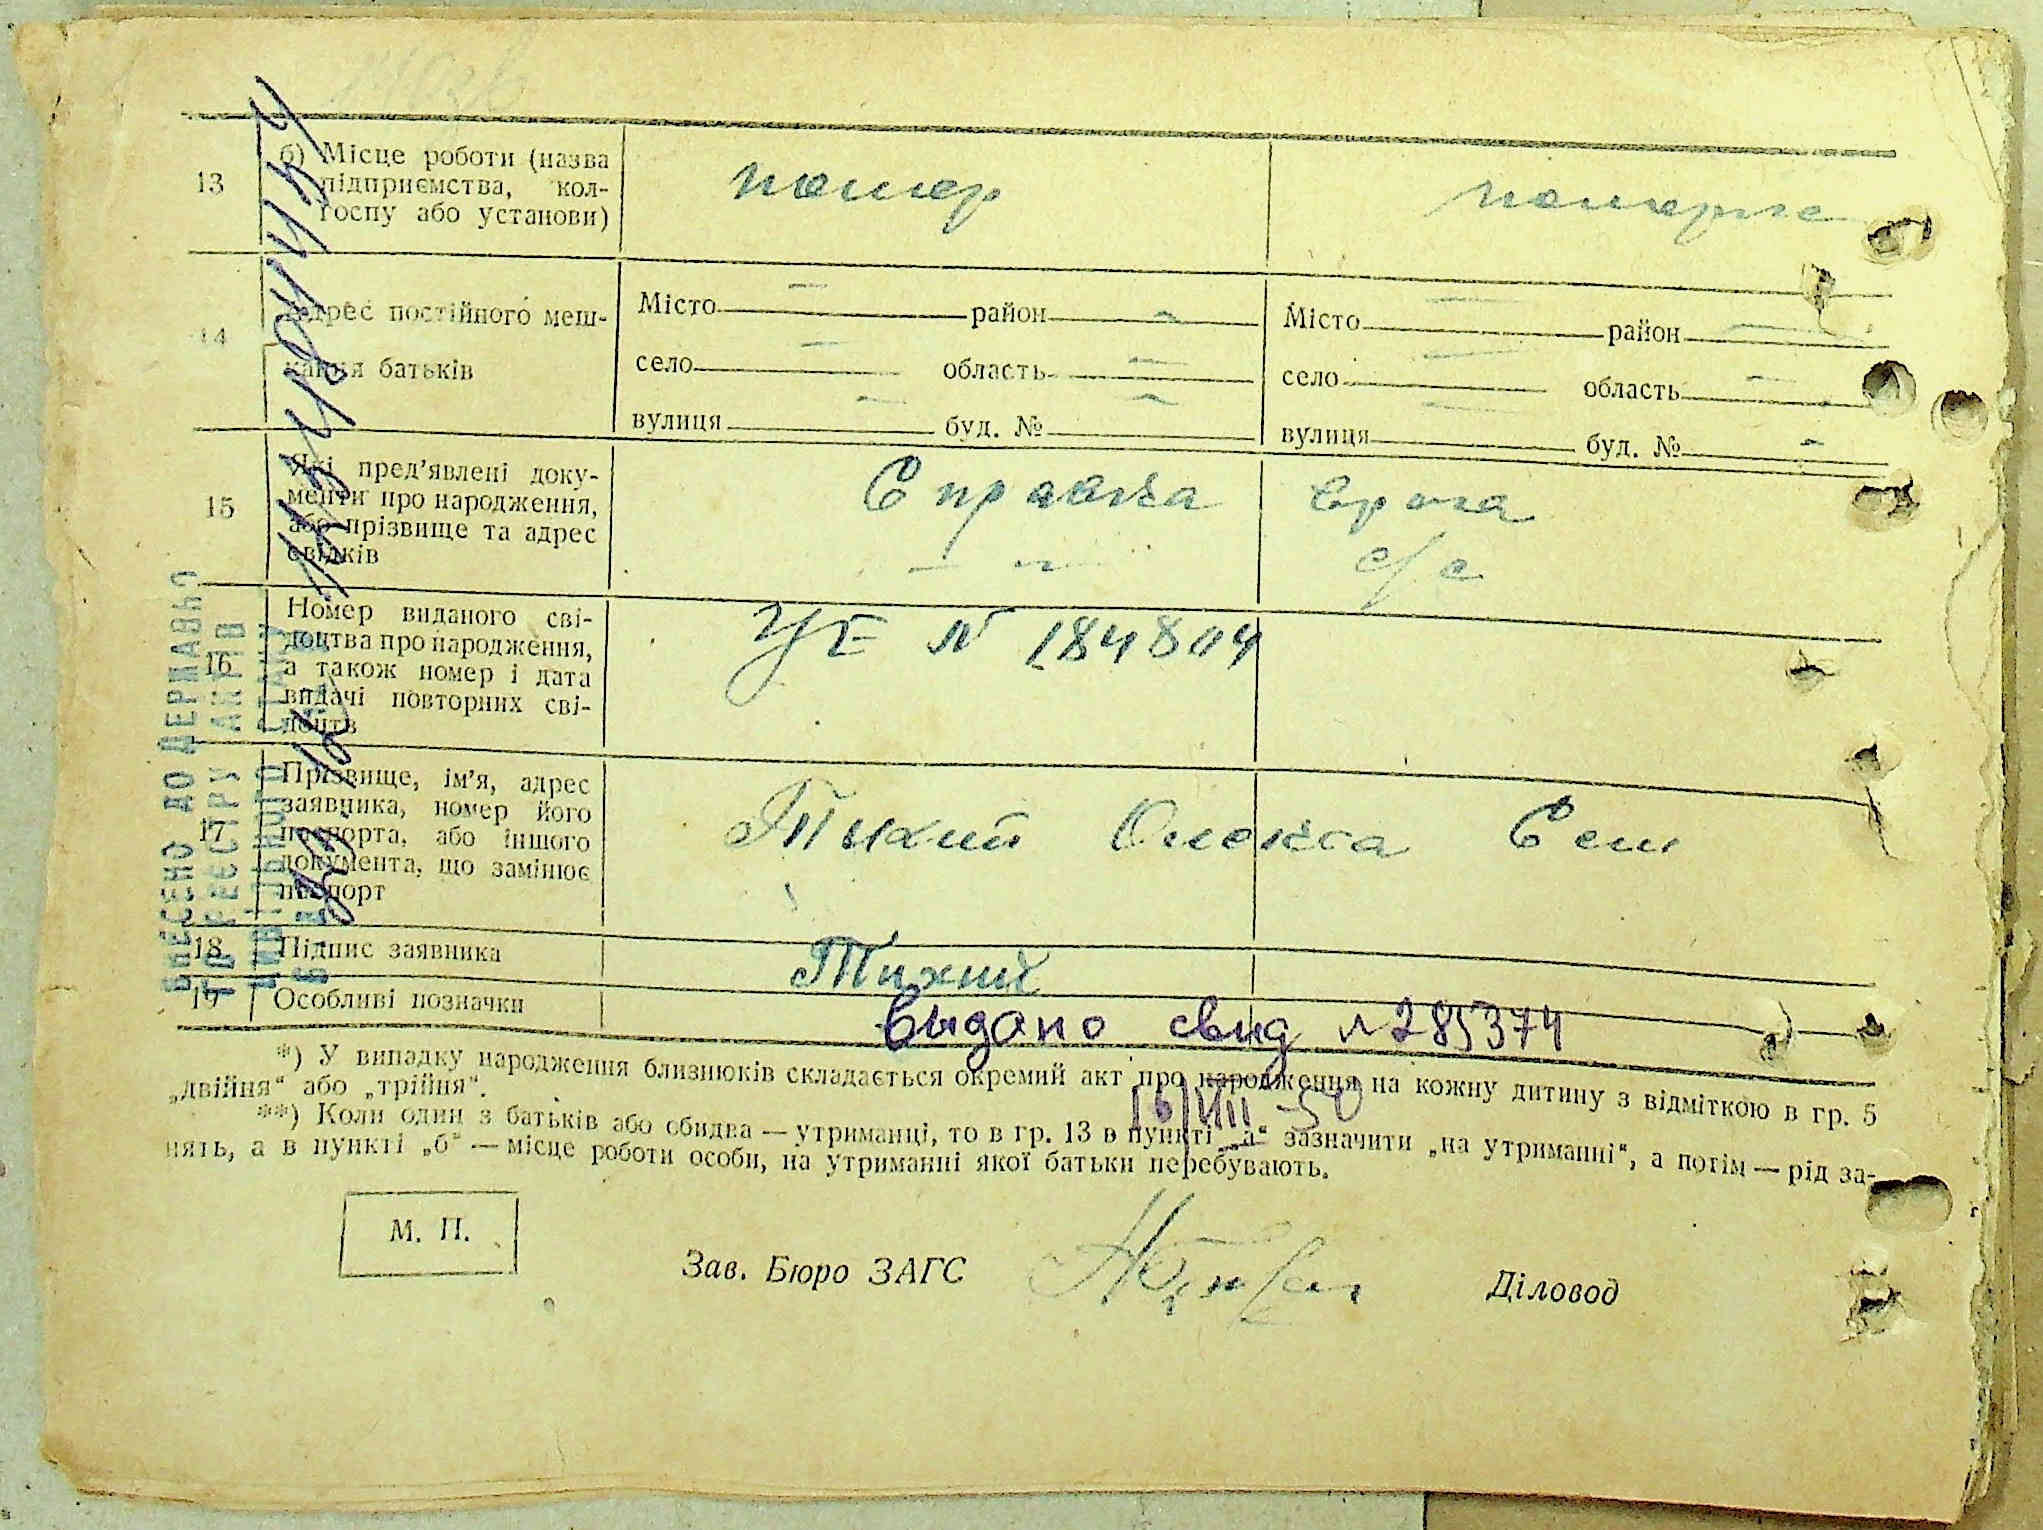 13
б) Місце роботи (назва
підприємства, кол-
госпу або установи)
помер
померла
14
Адрес постійного меш-
кання батьків
Місто — район —
село — область —
вулиця — буд. № —
Місто — район —
село — область —
вулиця — буд. № —
15
Які пред’явлені доку-
менти про народження,
або прізвище та адрес
свідків
Справка
с/с
16
Номер виданого сві-
доцтва про народження,
а також номер і дата
видачі повторних сві-
доцтв
УЕ № 184804
17
Прізвище, ім’я, адрес
заявника, номер його
паспорта, або іншого
документа, що замінює
паспорт
Тихий Олекса Сем
18
Підпис заявника
Тихий
19
Особливі позначки
Выдано свид №285374
16/VIII-50
*) У випадку народження близнюків складається окремий акт про народження на кожну дитину з відміткою в гр. 5
„двійня“ або „трійня“.
**) Коли один з батьків або обидва — утриманці, то в гр. 13 в пункті „а“ зазначити „на утриманні“, а потім — рід за-
нять, а в пункті „б“ — місце роботи особи, на утриманні якої батьки перебувають.
М. П.
Зав. Бюро ЗАГС
Діловод
ВНЕСЕНО ДО ДЕРЖАВНО
ГО РЕЄСТРУ АКТІВ
ЦИВІЛЬНОГО СТАНУ